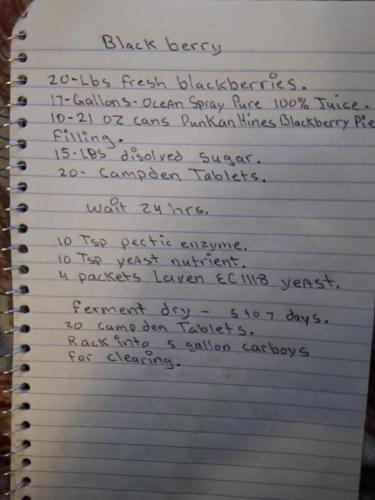 Black berry
20-Lbs fresh blackberries.
17-Gallons-Ocean Spray Pure 100% Juice.
10-21 OZ cans Dunkan Hines Blackberry Pie
filling.
15-LBS disolved sugar.
20- Campden Tablets.
Wait 24 hrs.
10 Tsp pectic enzyme.
10 Tsp yeast nutrient.
4 packets Laven EC1118 yeast.
ferment dry - 5 to 7 days.
20 campden Tablets.
Rack into 5 gallon carboys
for clearing.